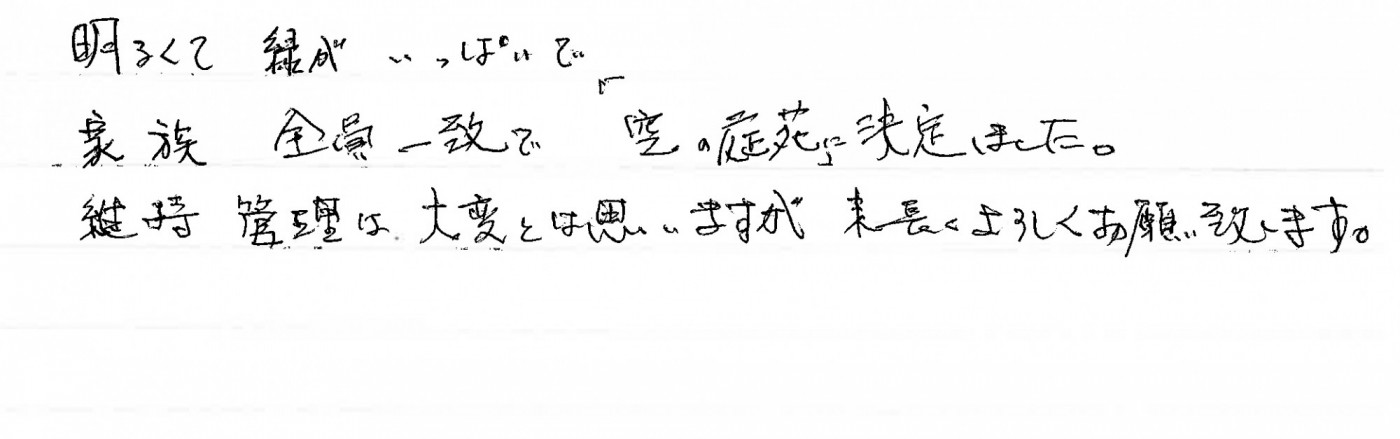 明るくて 緑が いっぱいで
家族 全員一致で 「空の庭苑」に決定しました。
維持 管理は 大変とは思いますが 末長くよろしくお願い致します。